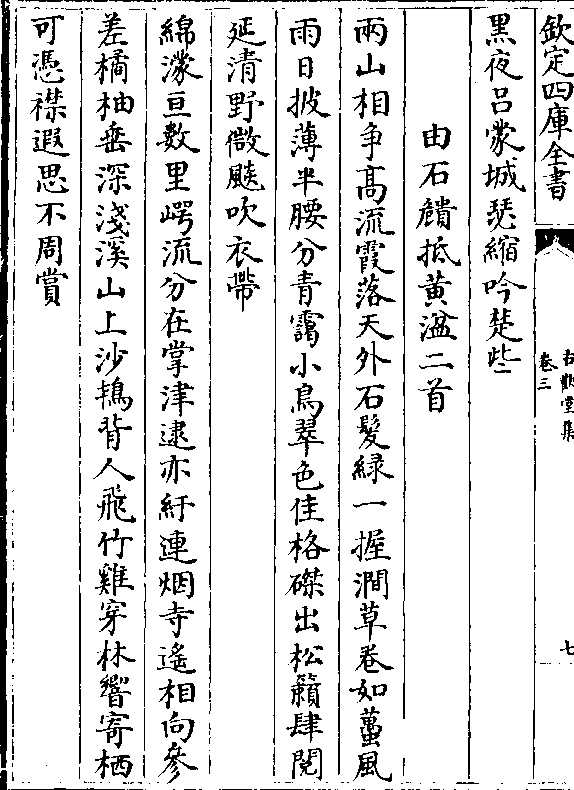 欽定四庫全書
古歡堂集
卷三
七
黑夜呂蒙城瑟縮吟楚些
由石饋抵黃湓二首
兩山相争髙流霞落天外石髪緑一握澗草卷如蠆風
雨日披薄半腰分青靄小鳥翠色佳格磔出松籟肆閱
延清野微飈吹衣帶
綿濛亘數里崿流分在掌津逮亦紆連烟寺遙相向參
差橘柚垂深淺溪山上沙鵁背人飛竹雞穿林響寄栖
可憑襟遐思不周賞